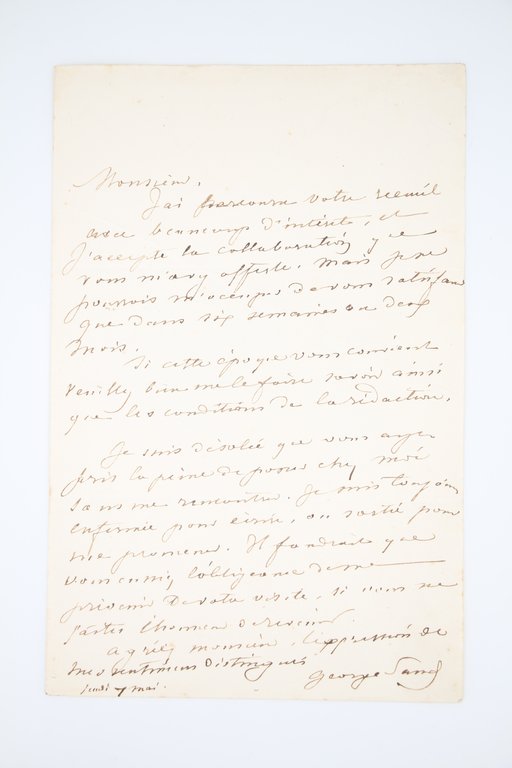 Monsieur,
J'ai parcouru votre recueil
avec beaucoup d'intérêt, et
j'accepte la collaboration que
vous m'avez offerte. Mais je ne
pourrois m'occuper de vous satisfaire
que dans six semaines ou deux
mois.
Si cette époque vous convient
veuillez bien me le faire savoir ainsi
que les conditions de la rédaction.
Je suis désolée que vous ayez
pris la peine de passer chez moi
sans me rencontrer. Je suis toujours
enfermée pour écrire, ou sortie pour
me promener. Il faudrait que
vous eussiez l'obligeance de me
prévenir de votre visite, si vous me
faites l'honneur de revenir.
agréez monsieur, l'expression de
mes sentimens distingués
George Sand
jeudi 7 mai.